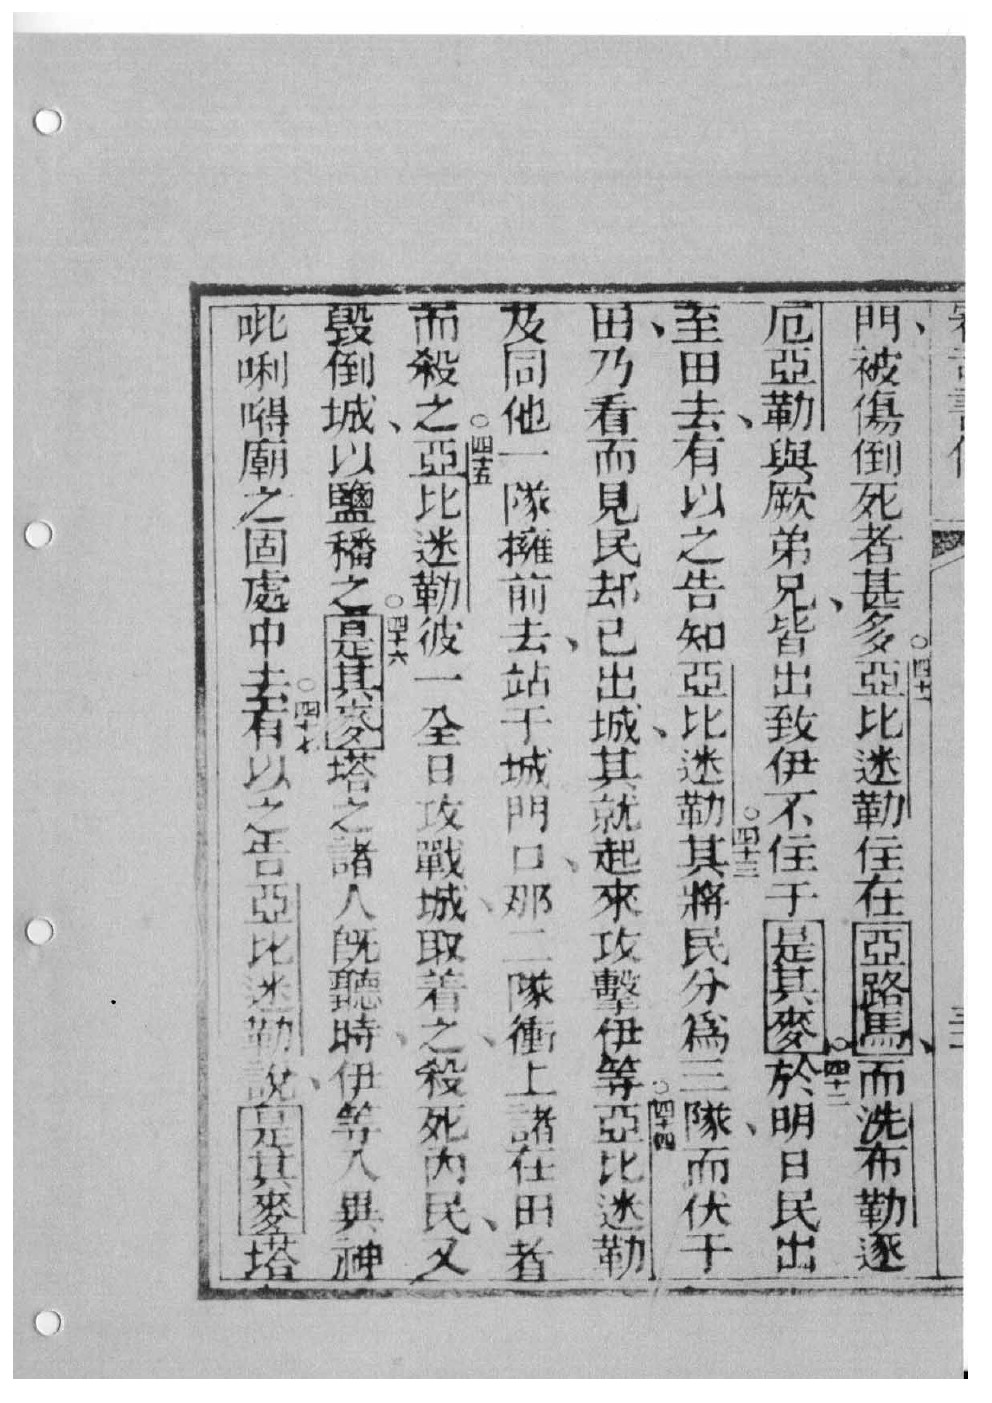 門、被傷倒死者甚多○四十一亞比迷勒住在亞路馬、而洗布勒逐
厄亞勒與厥弟兄、皆出致伊不住于是其麥○四十二於明日民出
至田去、有以之告知亞比迷勒○四十三其將民分為三隊、而伏于
田、乃看而見民却已出城、其就起來攻擊伊等○四十四亞比迷勒
及同他一隊擁前去、站于城門口、那二隊衝上諸在田者
而殺之○四十五亞比迷勒彼一全日攻戰城、取着之、殺死內民、又
毀倒城、以鹽播之○四十六是其麥塔之諸人既聽時、伊等入異神
吡唎嘚廟之固處中去○四十七有以之告亞比迷勒說、是其麥塔